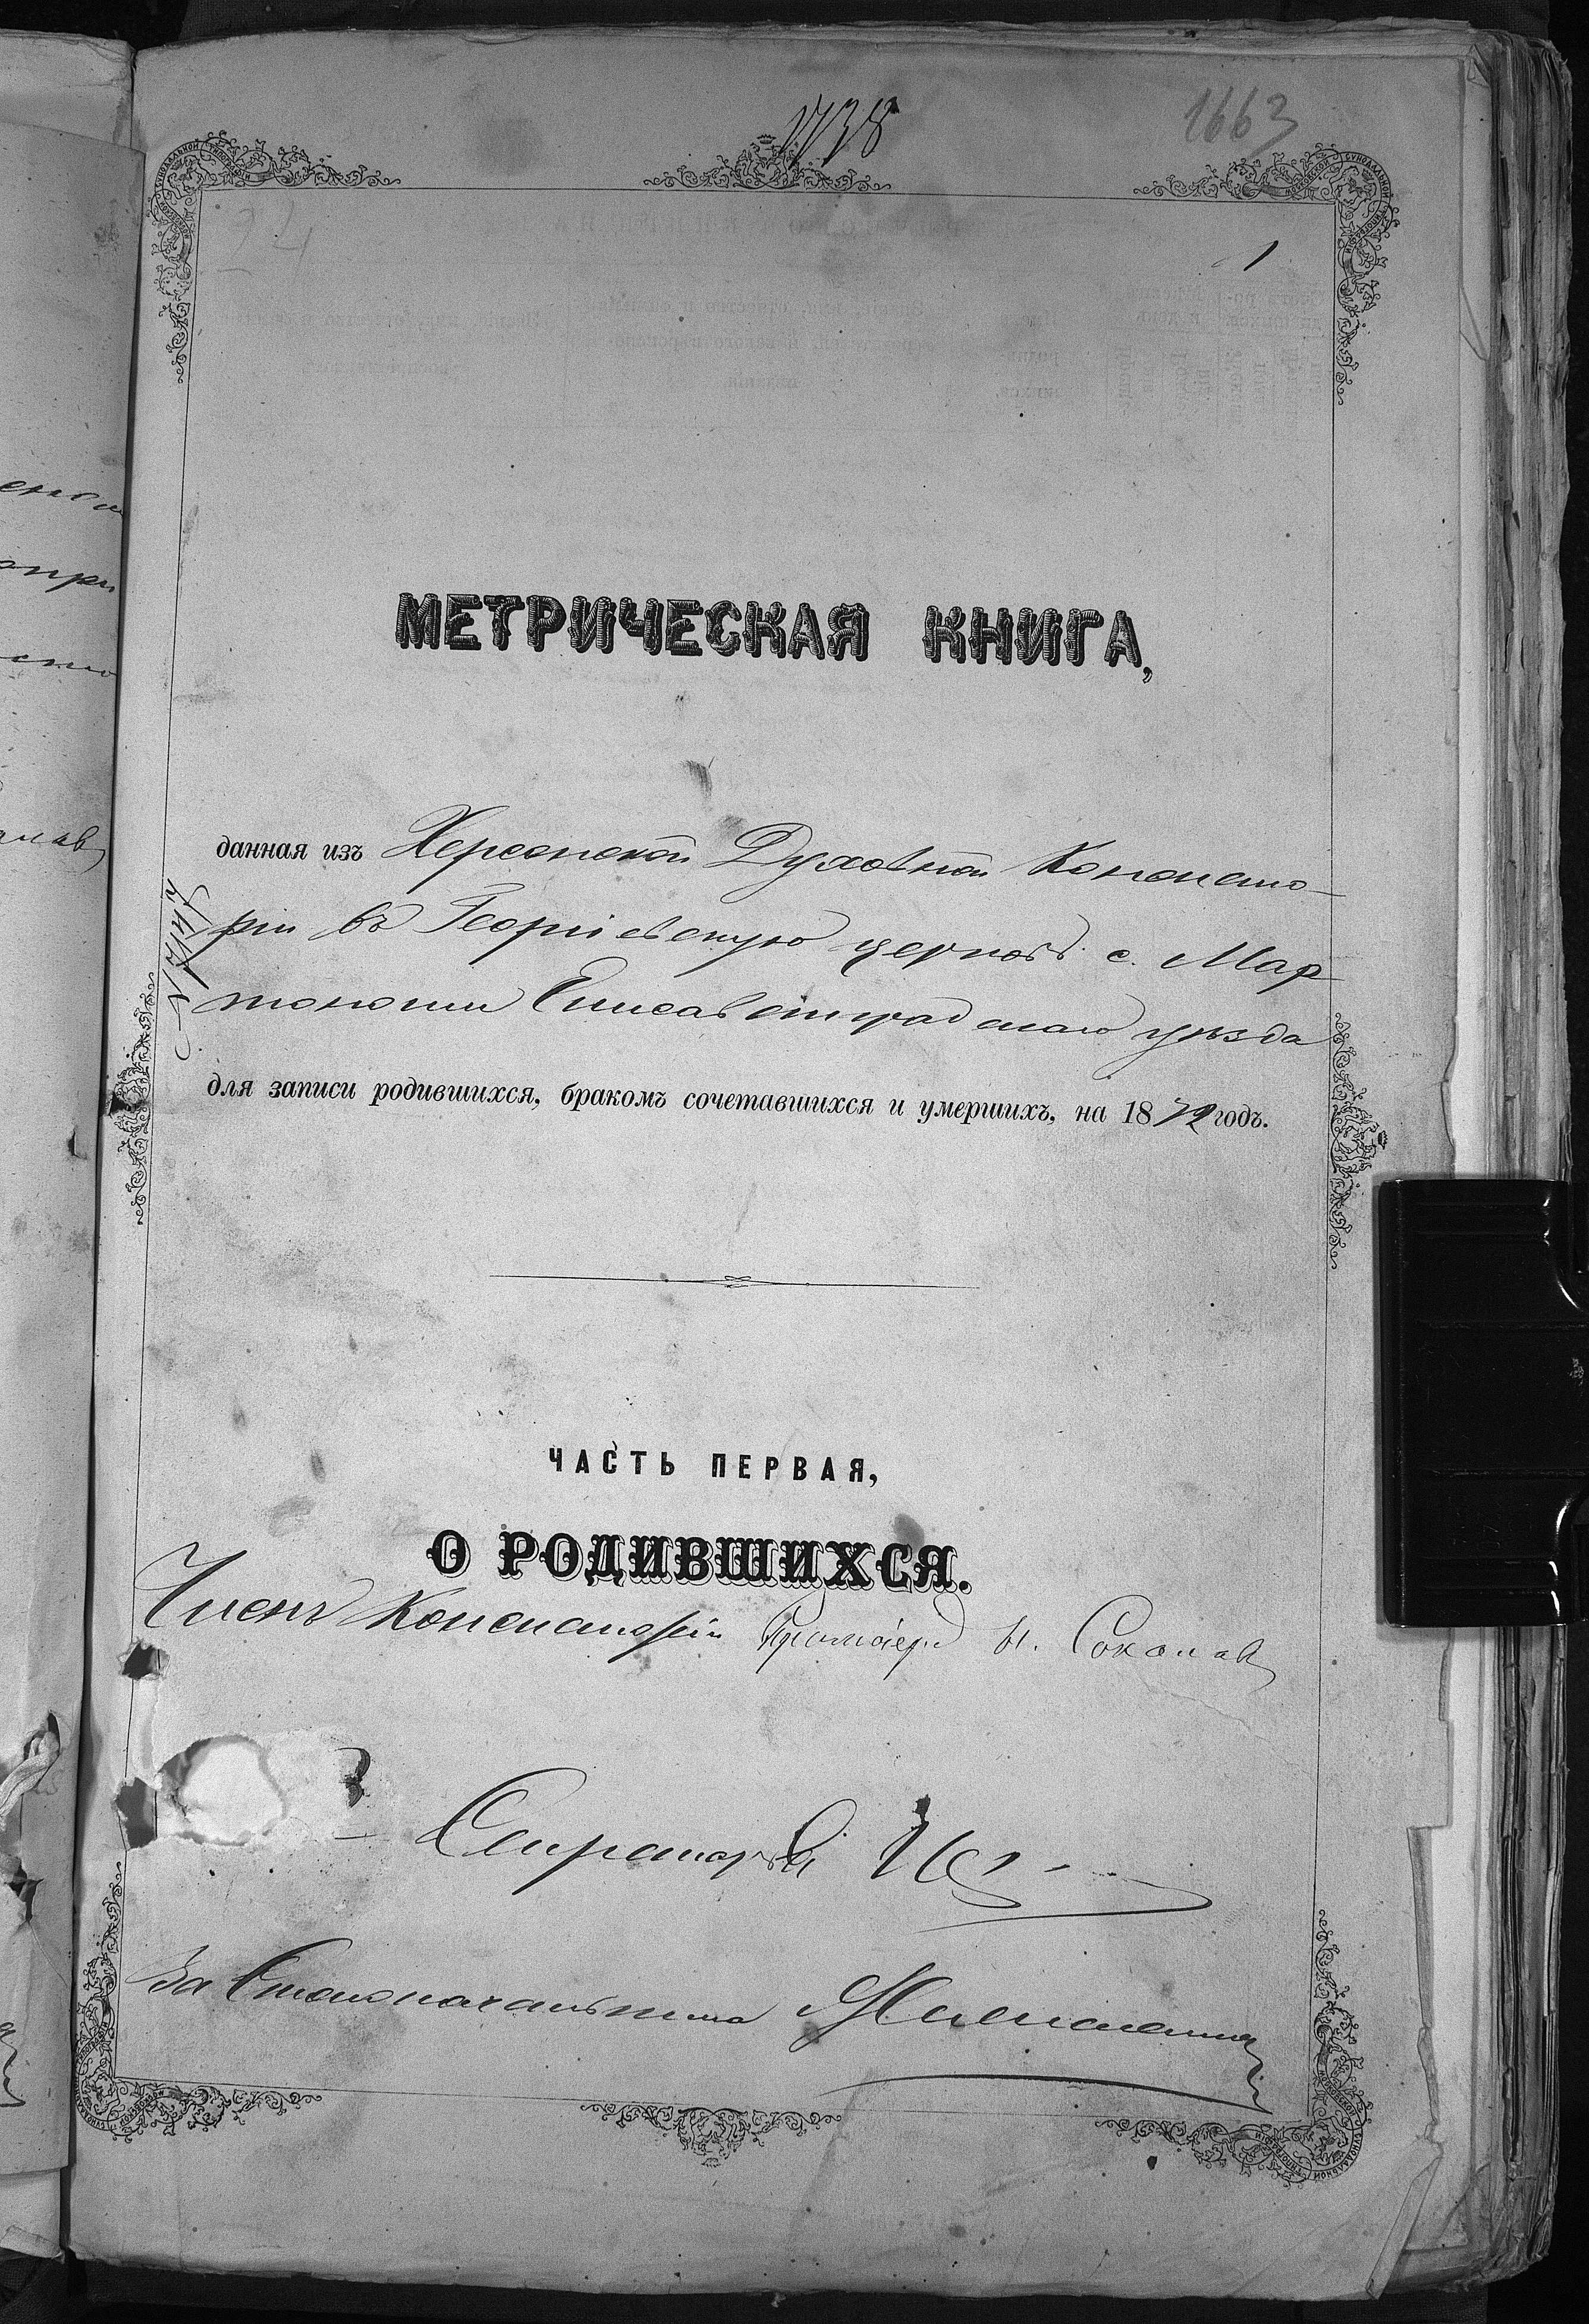 1738
1663
24
1
МЕТРИЧЕСКАЯ КНИГА,
данная изъ Херсонской Духовной Консисто-
ріи въ Георгіевскую церковь с. Мар-
тоноши Елисаветградскаго уѣзда
для записи родившихся, бракомъ сочетавшихся и умершихъ, на 1872 годъ.
ЧАСТЬ ПЕРВАЯ,
О РОДИВШИХСЯ.
Членъ Консисторіи Протоіер. Соколов
Секретарь
За Столоначальника